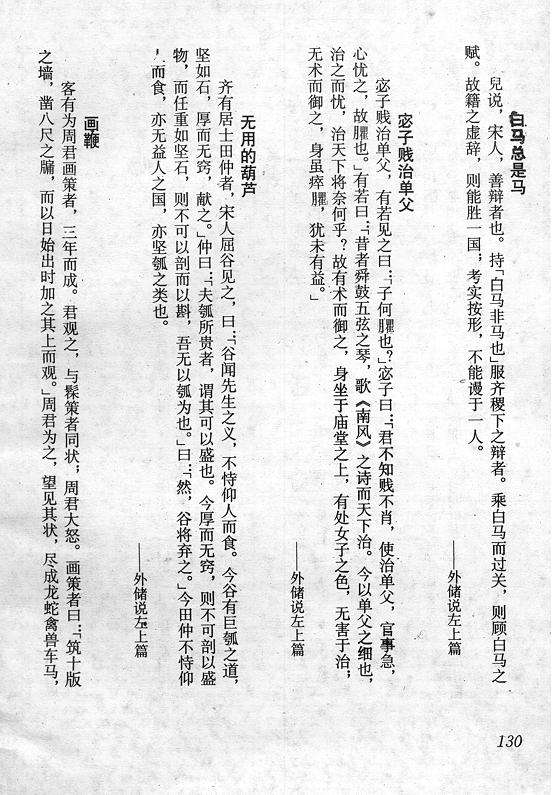 白马总是马
兒说，宋人，善辩者也。持「白马非马也」服齐稷下之辩者。乘白马而过关，则顾白马之
赋。故籍之虚辞，则能胜一国；考实按形，不能谩于一人。
——外储说左上篇
宓子贱治单父
宓子贱治单父，有若见之曰：「子何臞也？」宓子曰：「君不知贱不肖，使治单父，官事急，
心忧之，故臞也。」有若曰：「昔者舜鼓五弦之琴，歌《南风》之诗而天下治。今以单父之细也，
治之而忧，治天下将奈何乎？故有术而御之，身坐于庙堂之上，有处女子之色，无害于治；
无术而御之，身虽瘁臞，犹未有益。」
——外储说左上篇
无用的葫芦
齐有居士田仲者，宋人屈谷见之，曰：「谷闻先生之义，不恃仰人而食。今谷有巨瓠之道，
坚如石，厚而无窍，献之。」仲曰：「夫瓠所贵者，谓其可以盛也。今厚而无窍，则不可剖以盛
物，而任重如坚石，则不可以剖而以斟，吾无以瓠为也。」曰：「然，谷将弃之。」今田仲不恃仰
，而食，亦无益人之国，亦坚瓠之类也。
——外储说左上篇
画鞭
客有为周君画策者，三年而成。君观之，与髹策者同状；周君大怒。画策者曰：「筑十版
之墙，凿八尺之牖，而以日始出时加之其上而观。」周君为之，望见其状，尽成龙蛇禽兽车马，
130